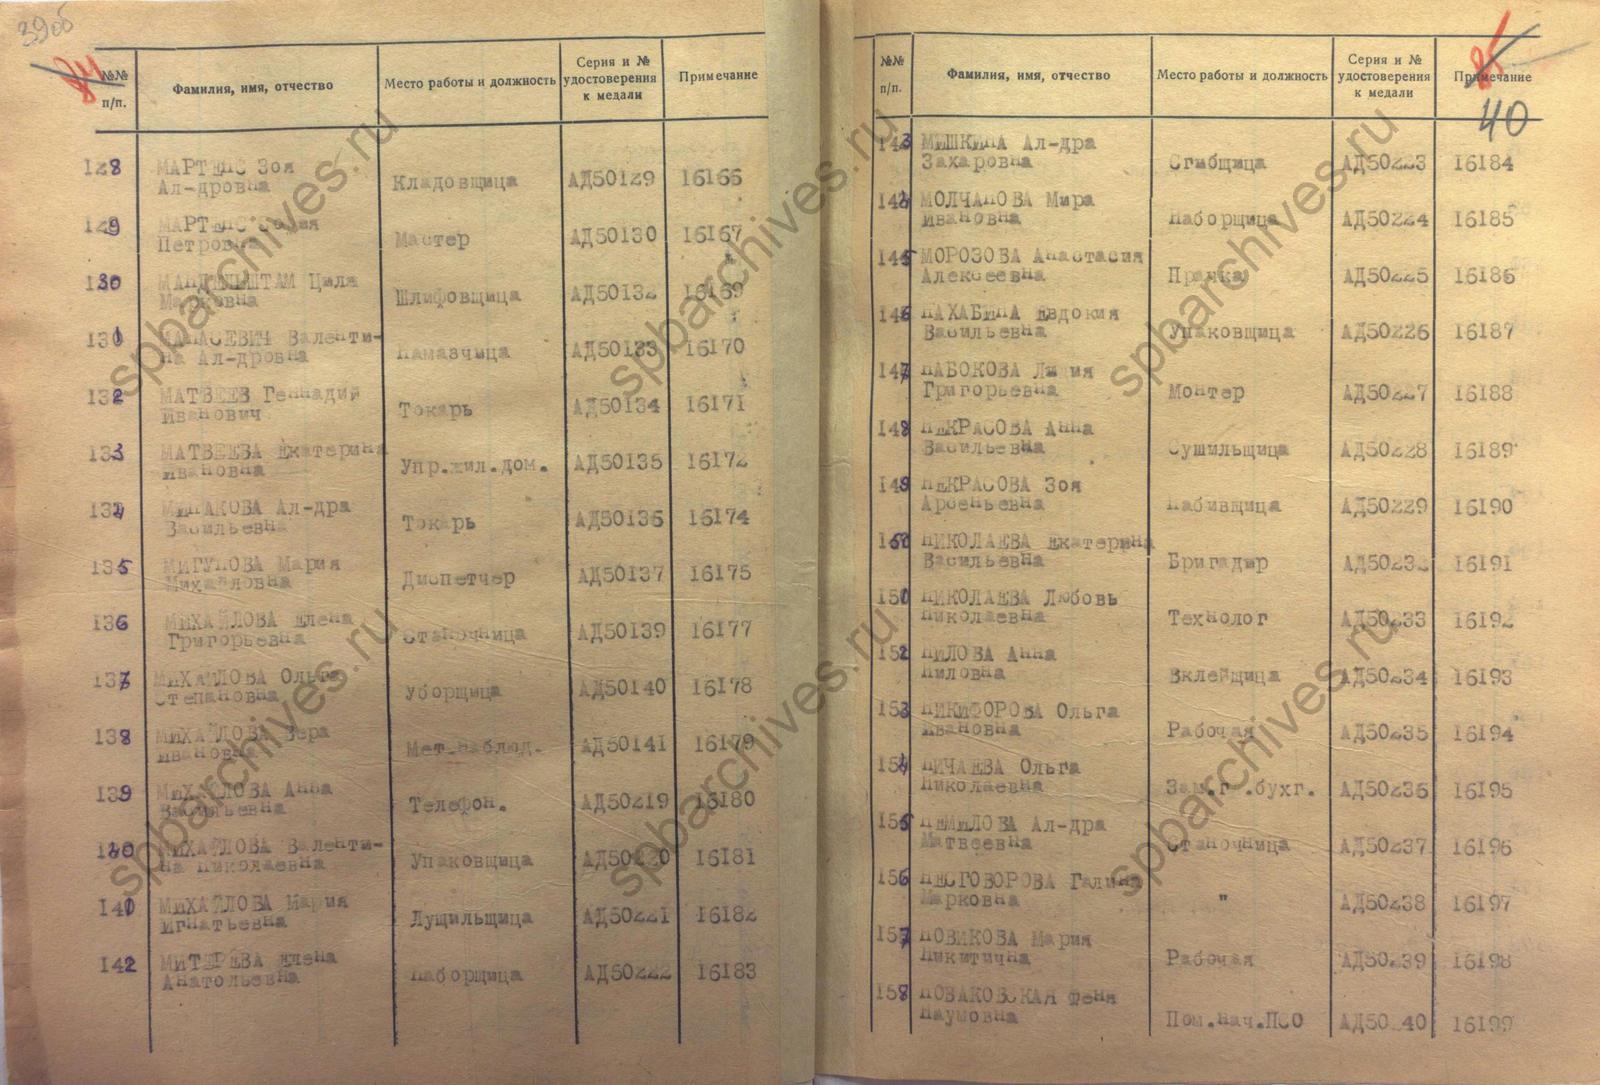 39об
84
№№ п/п. Фамилия, имя, отчество Место работы и должность Серия и № удостоверения к медали Примечание
128 МАРТЕНС Зоя Ал-дровна Кладовщица АД50129 16166
129 МАРТЕНС Петровна Мастер АД50130 16167
130 МАНДЕЛЬШТАМ Циля Марковна Шлифовщица АД50132 16169
131 МАНАСЕВИЧ Валенти-
на Ал-дровна Намазчица АД50133 16170
132 МАТВЕЕВ Геннадий Иванович Токарь АД50134 16171
133 МАТВЕЕВА Екатерина Ивановна Упр.жил.дом. АД50135 16172
134 МИНАКОВА Ал-дра Васильевна Токарь АД50136 16174
135 МИГУНОВА Мария Михайловна Диспетчер АД50137 16175
136 МИХАЙЛОВА Елена Григорьевна Станочница АД50139 16177
137 МИХАЙЛОВА Ольга Степановна Уборщица АД50140 16178
138 МИХАЙЛОВА Вера Ивановна Мет.наблюд. АД50141 16179
139 МИХАЙЛОВА Анна Васильевна Телефон. АД50219 16180
140 МИХАЙЛОВА Валенти-
на Николаевна Упаковщица АД50220 16181
141 МИХАЙЛОВА Мария Игнатьевна Лущильщица АД50221 16182
142 МИТЕРЕВА Елена Анатольевна Наборщица АД50222 16183
85
40
№№ п/п. Фамилия, имя, отчество Место работы и должность Серия и № удостоверения к медали Примечание
143 МИШКИНА Ал-дра Захаровна Сгибщица АД50223 16184
144 МОЛЧАНОВА Мира Ивановна Наборщица АД50224 16185
145 МОРОЗОВА Анастасия Алексеевна Прачка АД50225 16186
146 НАХАБИНА Евдокия Васильевна Упаковщица АД50226 16187
147 НАБОКОВА Лидия Григорьевна Монтер АД50227 16188
148 НЕКРАСОВА Анна Васильевна Сушильщица АД50228 16189
149 НЕКРАСОВА Зоя Арсеньевна Набивщица АД50229 16190
150 НИКОЛАЕВА Екатерина Васильевна Бригадир АД50232 16191
151 НИКОЛАЕВА Любовь Николаевна Технолог АД50233 16192
152 НИЛОВА Анна Ниловна Вклейщица АД50234 16193
153 НИКИФОРОВА Ольга Ивановна Рабочая АД50235 16194
154 НИЧАЕВА Ольга Николаевна Зам.гл.бухг. АД50236 16195
155 НЕМИЛОВА Ал-дра Матвеевна Станочница АД50237 16196
156 НЕСГОВОРОВА Галина Марковна " АД50238 16197
157 НОВИКОВА Мария Никитична Рабочая АД50239 16198
158 НОВАКОВСКАЯ Феня Наумовна Пом.нач.ПСО АД50240 16199
spbarchives.ru
spbarchives.ru
spbarchives.ru
spbarchives.ru
spbarchives.ru
spbarchives.ru